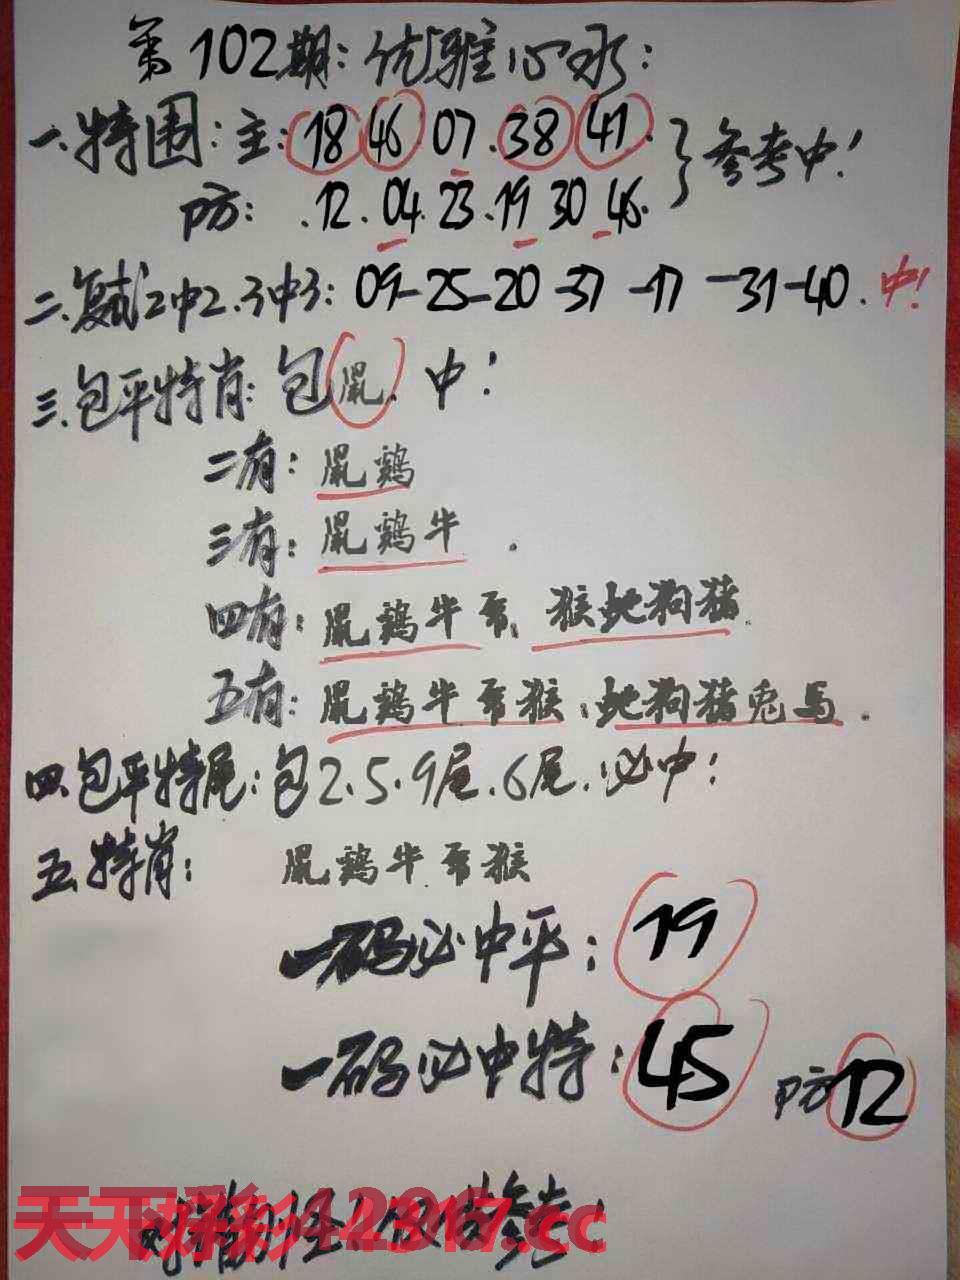 第102期:优雅心水:
一.特围:主:18 46 07.38 41.
防:.12.04.23.19 30 46.
}参考中!
二.复式2中2.3中3:09-25-20-37-17-31-40.中!
三.包平特肖:包鼠.中!
二有:鼠鸡
三有:鼠鸡牛.
四有:鼠鸡牛 猴蛇狗猪.
五有:鼠鸡牛 猴:蛇狗猪兔马.
四.包平特尾:包2.5.9尾.6尾.必中!
五.特肖:鼠鸡牛. 猴
一码必中平:19
一码必中特:45 防12
天下彩 .cc
参考!